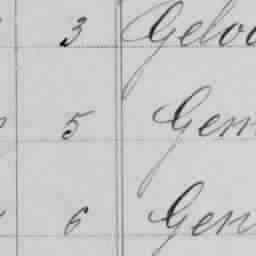 3 Geloo
5 Gem
6 Gen